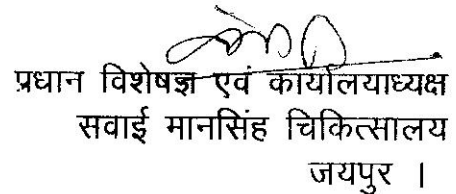 प्रधान विशेषज्ञ एवं कार्यालयाध्यक्ष
सवाई मानसिंह चिकित्सालय
जयपुर ।